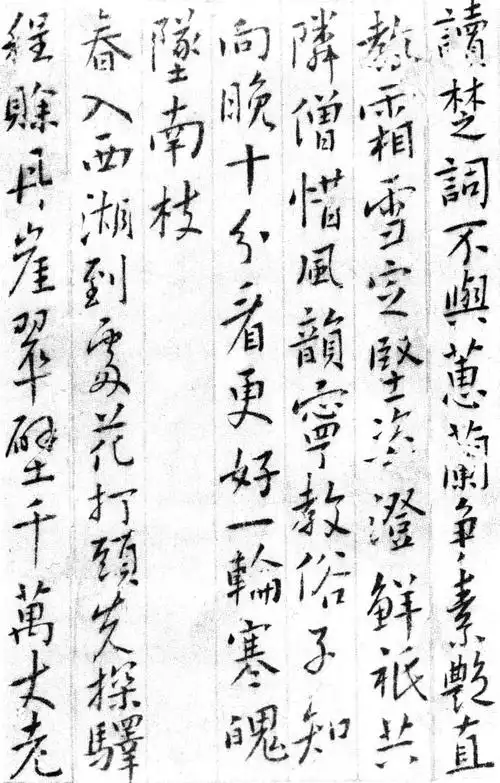 讀楚詞不與蕙蘭爭素艷直
教霜雪定堅姿澄鮮祇共
隣僧惜風韻寧教俗子知
向晚十分看更好一輪寒魄
墜南枝
春入西湖到處花打頭先探驛
程賒丹崖翠壁千萬丈老